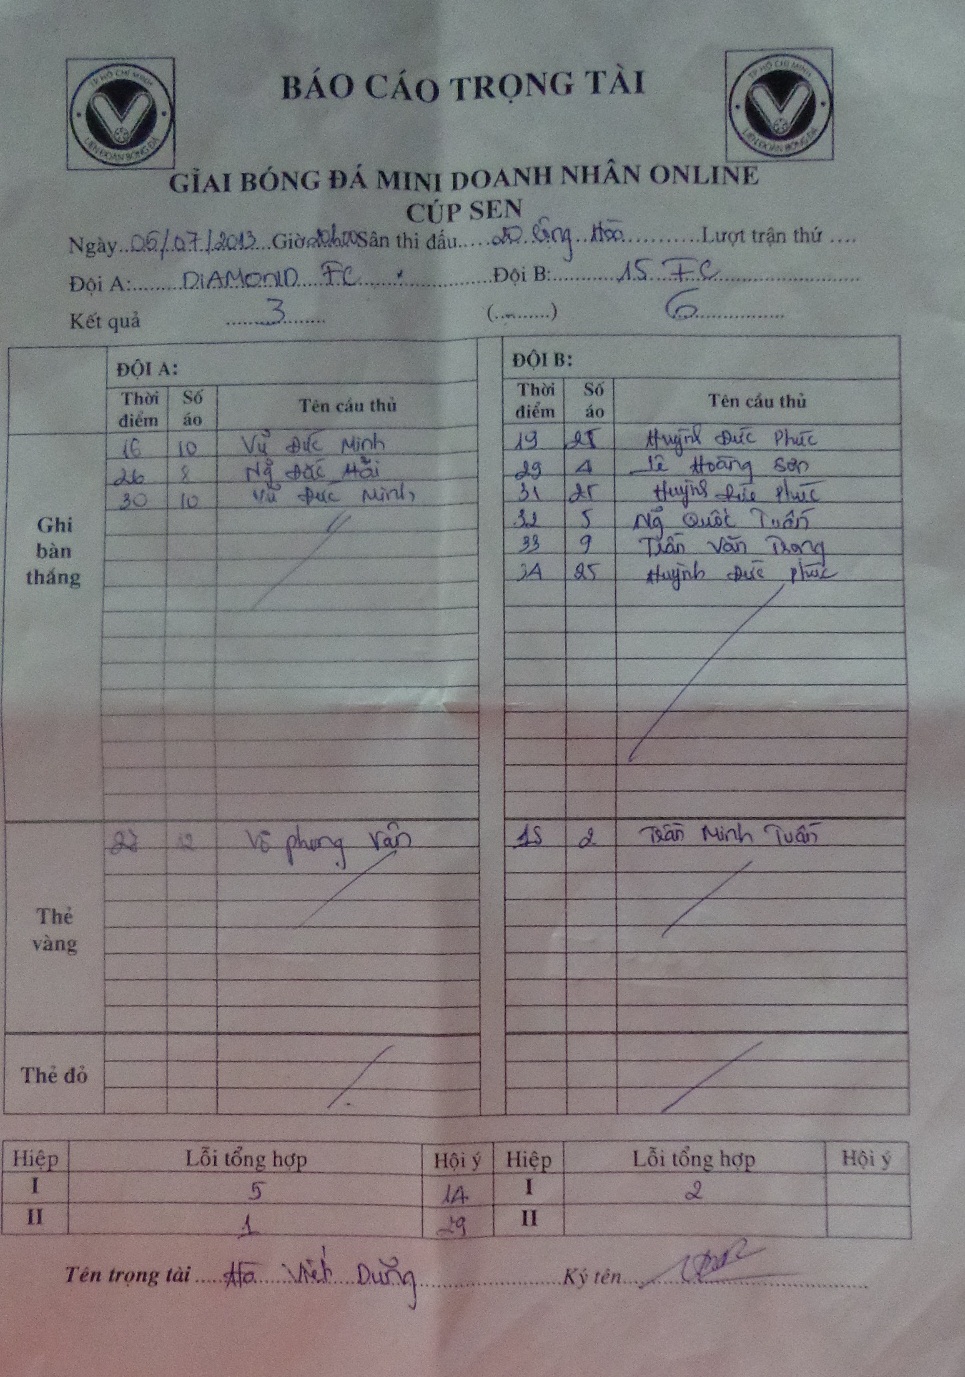 TP HỒ CHÍ MINH
LIÊN ĐOÀN BÓNG ĐÁ
BÁO CÁO TRỌNG TÀI
TP HỒ CHÍ MINH
LIÊN ĐOÀN BÓNG ĐÁ
GIẢI BÓNG ĐÁ MINI DOANH NHÂN ONLINE
CÚP SEN
Ngày..06/07/2013..Giờ 20h00 Sân thi đấu.... Cộng Hòa ...........Lượt trận thứ ....
Đội A:........DIAMOND FC................Đội B:...........15 FC........................
Kết quả ......3....... (...........) 6................
ĐỘI A: ĐỘI B:
Thời điểm Số áo Tên cầu thủ Thời điểm Số áo Tên cầu thủ
Ghi bàn thắng
16 10 Vũ Đức Minh 19 25 Huỳnh Đức Phúc
26 8 Ng Đắc Hải 29 4 Lê Hoàng Sơn
30 10 Vũ Đức Minh 31 25 Huỳnh Đức Phúc
32 5 Ng Quốc Tuấn
33 9 Trần Văn Trọng
34 25 Huỳnh Đức Phúc
Thẻ vàng
12 Võ phong Vân 15 2 Trần Minh Tuấn
Thẻ đỏ
Hiệp Lỗi tổng hợp Hội ý Hiệp Lỗi tổng hợp Hội ý
I 5 14 I 2
II 1 29 II
Tên trọng tài ....Hà Viết Dũng......................Ký tên....